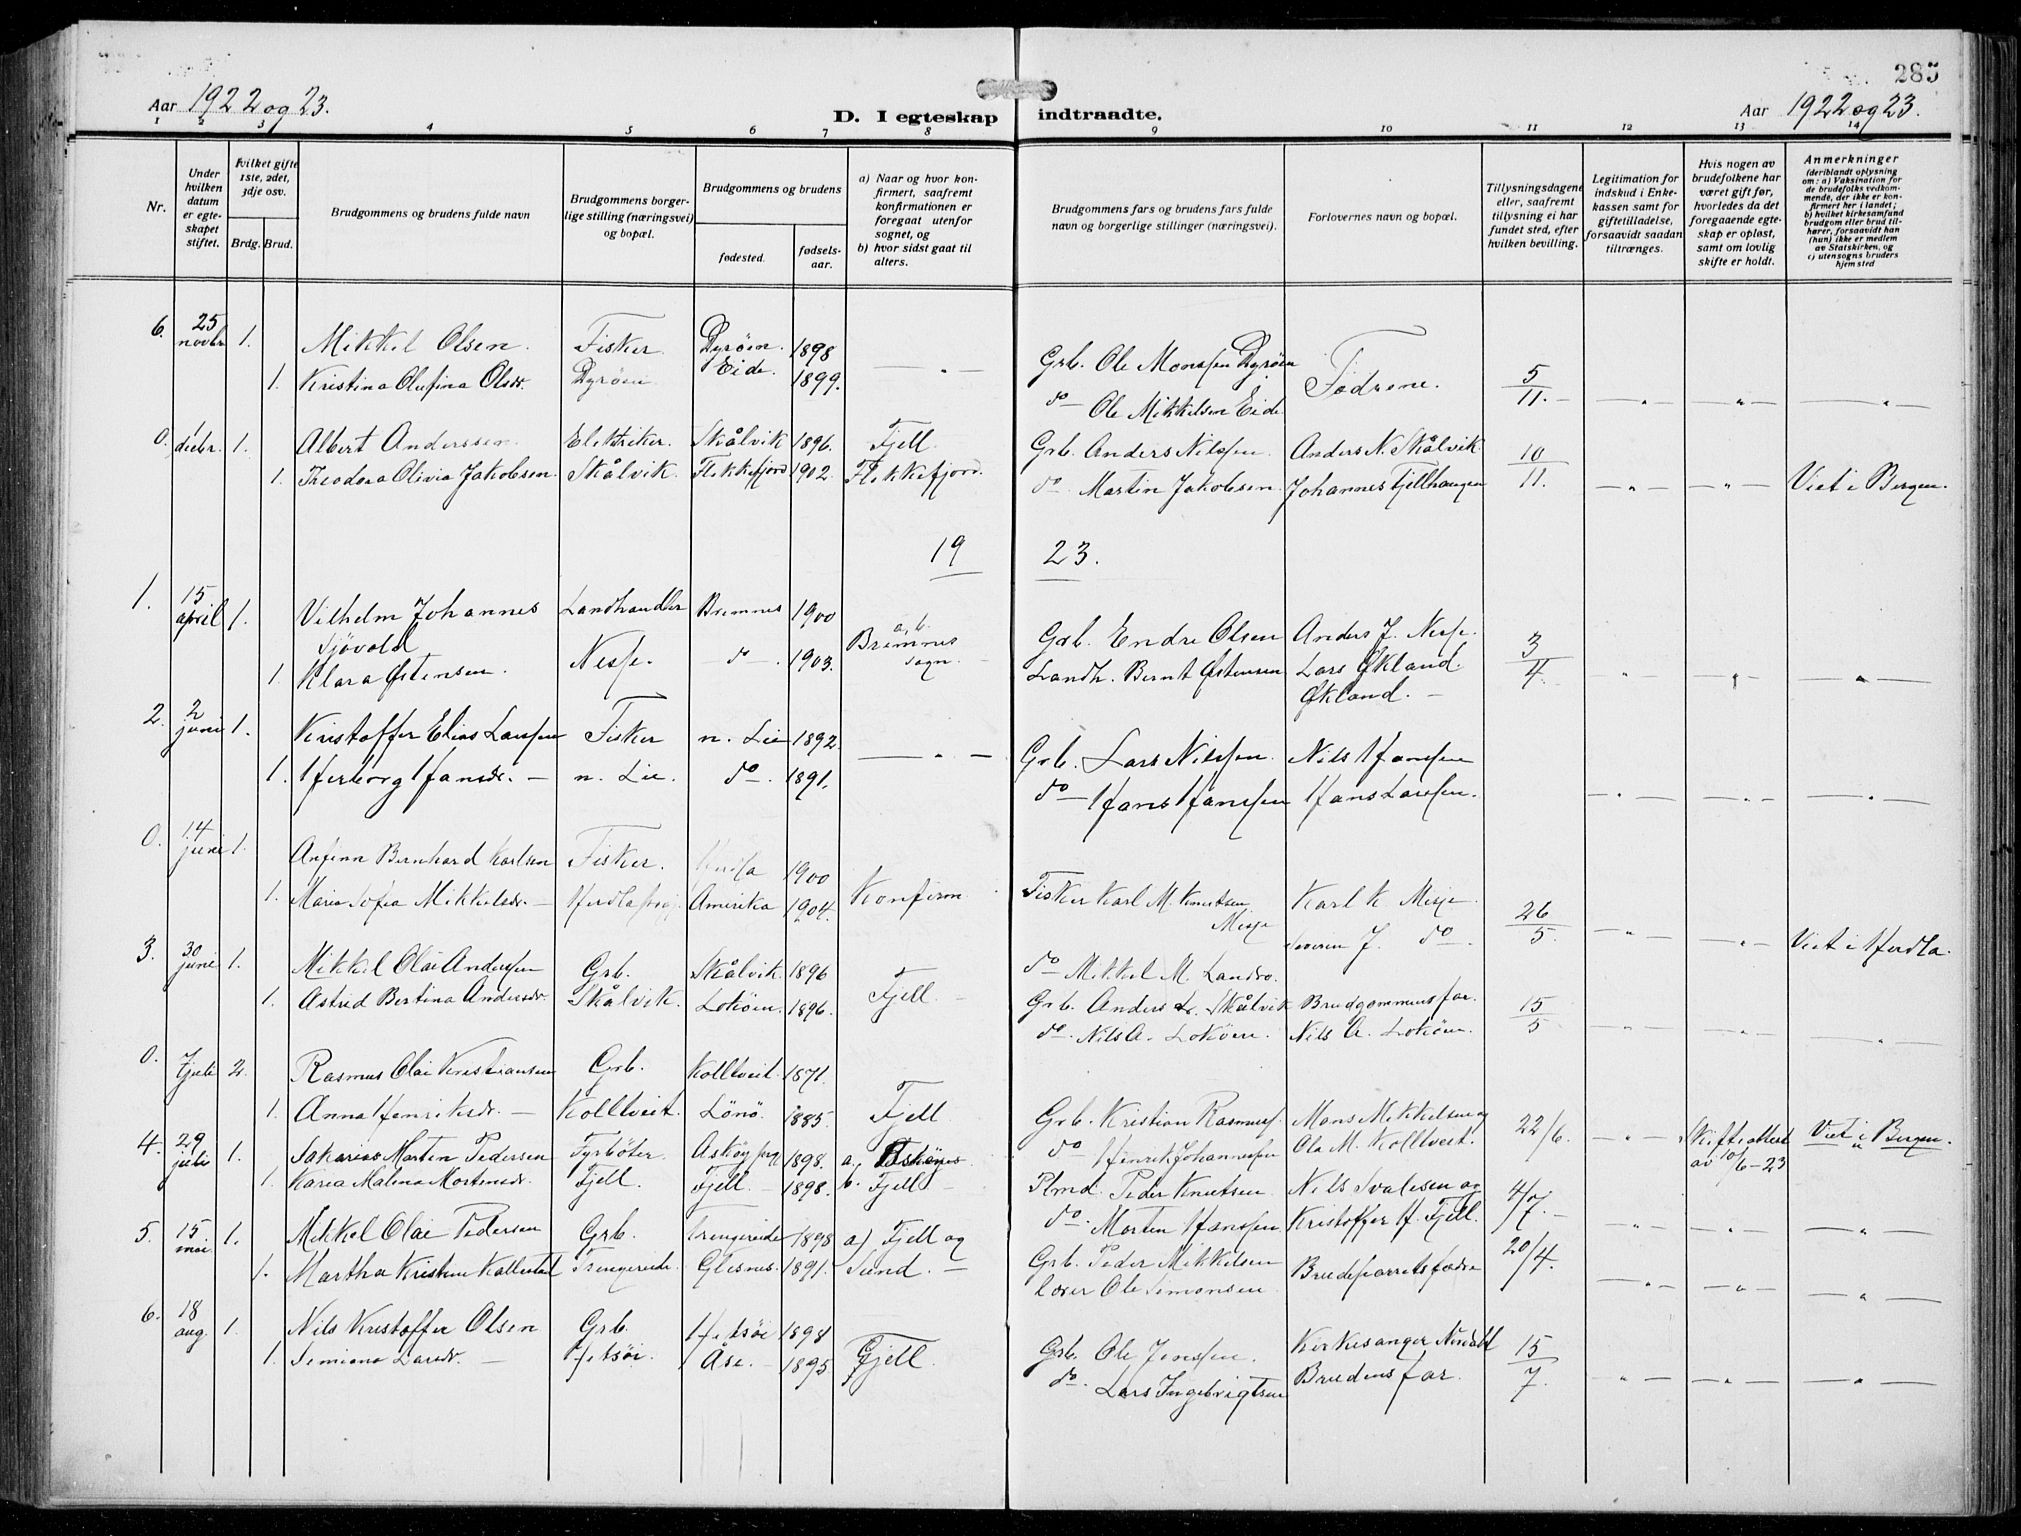 285
Aar 1922 og 23.
D. I egteskap indtraadte.
Aar 1922 og 23.
1 2 3 4 5 6 7 8 9 10 11 12 13 14
Nr.
Under hvilken datum er egteskapet stiftet.
Hvilket gifte 1ste, 2det, 3dje osv.
Brdg. Brud.
Brudgommens og brudens fulde navn
Brudgommens borgerlige stilling (næringsvei) og bopæl.
Brudgommens og brudens
fødested.
fødselsaar.
a) Naar og hvor konfirmert, saafremt konfirmationen er foregaat utenfor sognet, og
b) hvor sidst gaat til alters.
Brudgommens fars og brudens fars fulde navn og borgerlige stillinger (næringsvei).
Forlovernes navn og bopæl.
Tillysningsdagene eller, saafremt tillysning ei har fundet sted, efter hvilken bevilling.
Legitimation for indskud i Enkekassen samt for giftetilladelse, forsaavidt saadan tiltrænges.
Hvis nogen av brudefolkene har været gift før, hvorledes da det foregaaende egteskap er opløst, samt om lovlig skifte er holdt.
Anmerkninger
(deriblandt oplysning om: a) Vaksination for de brudefolks vedkommende, der ikke er konfirmert her i landet;
b) hvilket kirkesamfand brudgom eller brud tilhører, forsaavidt han (hun) ikke er medlem av Statskirken, og
c) utensogns bruders hjemsted
6. 25 novbr 1. Mikkel Olsen. Fisker Dyröen. 1898 Grb. Ole Monsen Dyröen Fædrene. 5/11. — " — " "
1. Kristina Olufina Olsdr. Dyröen Eide. 1899. — " — do — Ole Mikkelsen Eide
0. 1 decbr. 1. Albert Anderssen. Elektriker. Skålvik 1896. Fjell Grb. Anders Nilssen. Anders N. Skålvik 10/11.
1. Theodora Olivia Jakobsen Skålvik. Flekkefjord 1902. Flekkefjord. do. Martin Jakobsen. Johannes Fjellhaugen — " — — " — Viet i Bergen.
19 23.
1. 15 april 1. Vilhelm Johannes Sjövold Landhandler Bremnes 1900 a, b. Bremnes sogn. Grb. Endre Olsen Anders J. Nesse. 3/4.
1. Klara Østensen. Nesse. — do — 1903. Landh. Bernt Østensen Lars Økland. Økland. —
2. 2 juni 1. Kristoffer Elias Larssen Fisker n. Lie 1892. — " — Grb. Lars Nilssen. Nils Hanssen
1. Herborg Hansdr. — n. Lie. do. 1891. do — Hans Hanssen Hans Larssen. — " — — " — — " —
0. 14 juni 1. Anfinn Bernhard Karlsen Fisker. Herdla 1900 Konfirm Fisker Karl M. Knutsen Misje Karl K. Misje 26/5.
1. Maria Sofia Mikkelsdr. — Amerika 1904. do Mikkel M. Landro. Severin J. do. — " — — " — Viet i Herdla.
3. 30 juni 1. Mikkel Olai Anderssen Grb. Skålvik. 1896 Fjell. — Grb. Anders L. Skålvik Brudgommens far. 15/5
1. Astrid Bertina Andersdr. Skålvik. Lokøen. 1896. do. Nils A. Lokøen. Nils A. Lokøen.
0. 7 juli 2. Rasmus Olai Kristiansen Grb. Kolltveit. 1871. Fjell Grb. Kristian Rasmuss. Mons Mikkelsen og 22/6. — " — Skifteattest av 10/6-23 Viet i Bergen.
1. Anna Henriksdr. — Kolltveit. Lönö. 1885. do Henrik Johannessen Ola M. Kolltveit.
4. 29 juli 1. Sakarias Morten Pedersen Fyrböter. Askøy 1898. a, Askøynes Plmd. Peder Knutsen Nils Svalesen og 4/7. —
1. Karia Malena Mortensdr. Fjell. Fjell — 1898. b. Fjell — do. Morten Hanssen Kristoffer H. Fjell.
5. 15. mai. 1. Mikkel Olai Pedersen Grb. Trengereide 1898 a) Fjell og Grb. Peder Mikkelsen Brudeparrets fædre 20/4.
1. Martha Kristine Kallestad Trengereide. Glesnes. 1891. Sund. — Lærer Ole Simonsen
6. 18 aug. 1. Nils Kristoffer Olsen Grb. Hetsøi 1898 Fjell. Grb. Ole Jenssen. Kirkesanger Nordahl 15/7.
1. Simiana Larsdr. — Hetsøi. Åse. — 1895 do. Lars Ingebrigtsen Brudens far.